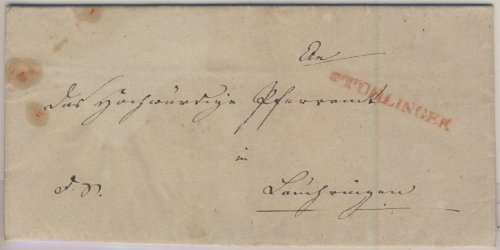 An
das Hochwürdige Pfarramt
STÜHLINGEN
in
d. S.
Lauchringen